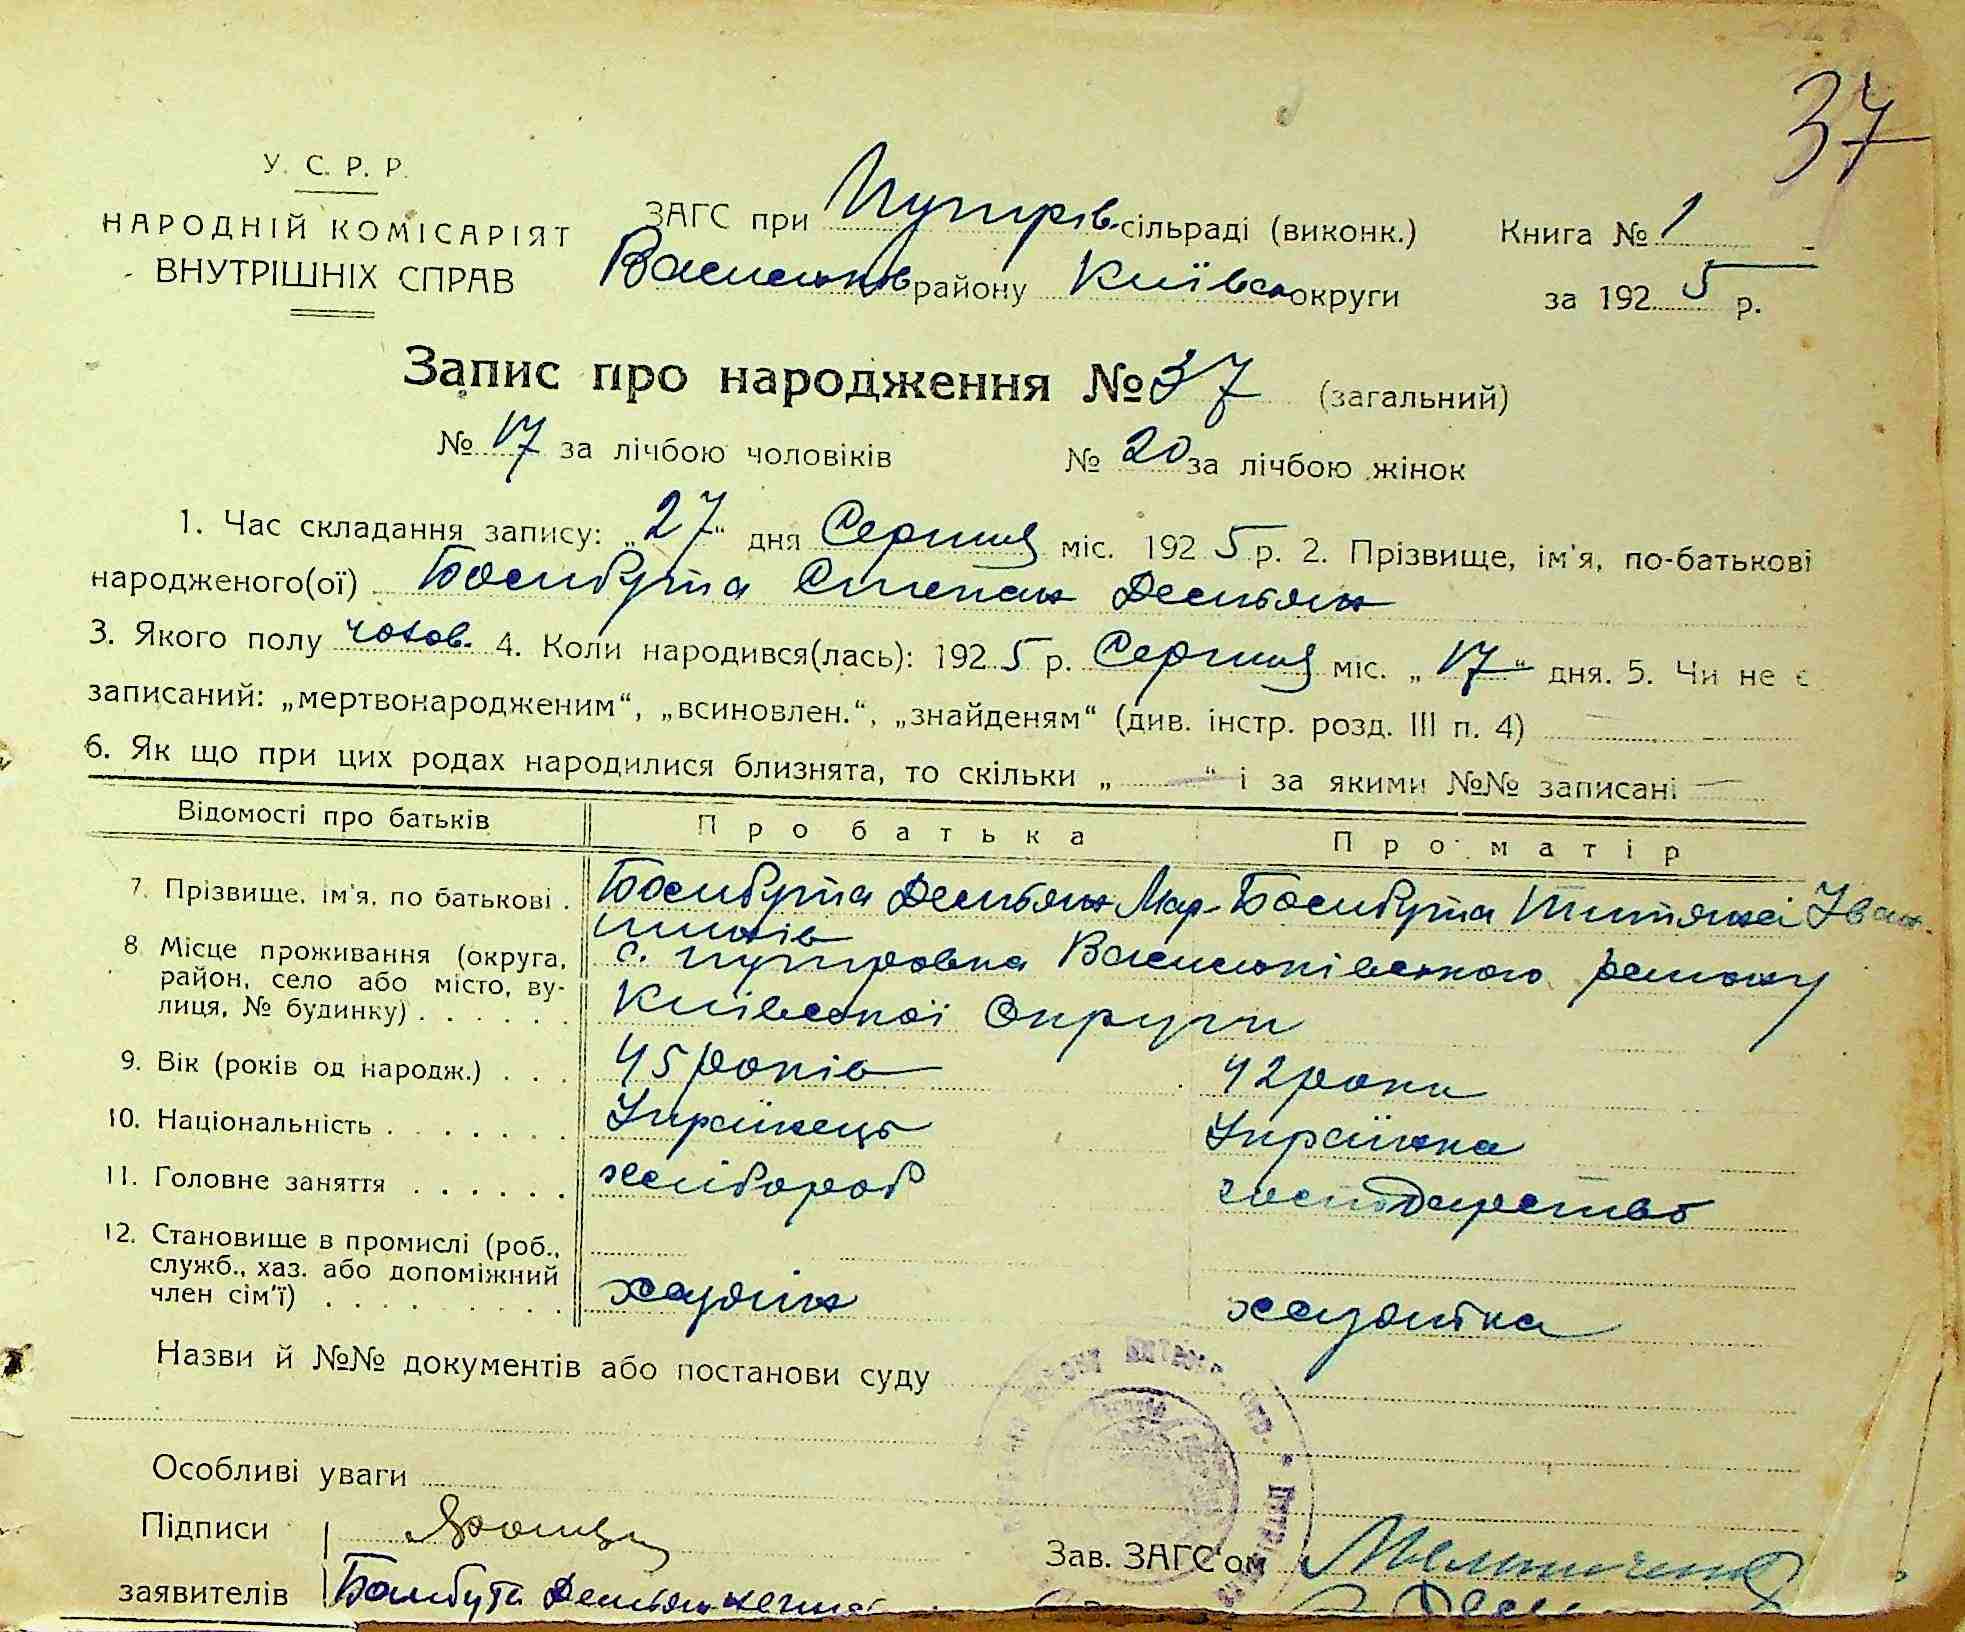 37
У. С. Р. Р.
НАРОДНІЙ КОМІСАРІЯТ
ВНУТРІШНІХ СПРАВ
ЗАГС при Путрів. сільраді (виконк.)
Васильків району Київськ округи
Книга № 1
за 1925 р.
Запис про народження № 37 (загальний)
№ 17 за лічбою чоловіків № 20 за лічбою жінок
1. Час складання запису: „27“ дня Серпня міс. 1925 р. 2. Прізвище, ім'я, по-батькові
народженого(ої) Бомбута Степан Демьян
3. Якого полу чолов. 4. Коли народився(лась): 1925 р. Серпня міс. „17“ дня. 5. Чи не є
записаний: „мертвонародженим“, „всиновлен.“, „знайденям“ (див. інстр. розд. III п. 4)
6. Як що при цих родах народилися близнята, то скільки „ “ і за якими №№ записані
Відомості про батьків Про батька Про матір
7. Прізвище, ім'я, по батькові . Бомбута Демьян Мар- Бомбута Іван.
8. Місце проживання (округа, с. Путровка Васильківського району
район, село або місто, ву-
лиця, № будинку) . . . . . . Київської Округи
9. Вік (років од народж.) . . . 45 років 42 роки
10. Національність . . . . . . . Українець Українка
11. Головне заняття . . . . . . хлібороб господарство
12. Становище в промислі (роб.,
служб., хаз. або допоміжний
член сім'ї) . . . . . . . . . хазяін хазяйка
Назви й №№ документів або постанови суду
Особливі уваги
Підписи
заявителів Бомбута Демьян
Зав. ЗАГС'ом Мельниченко